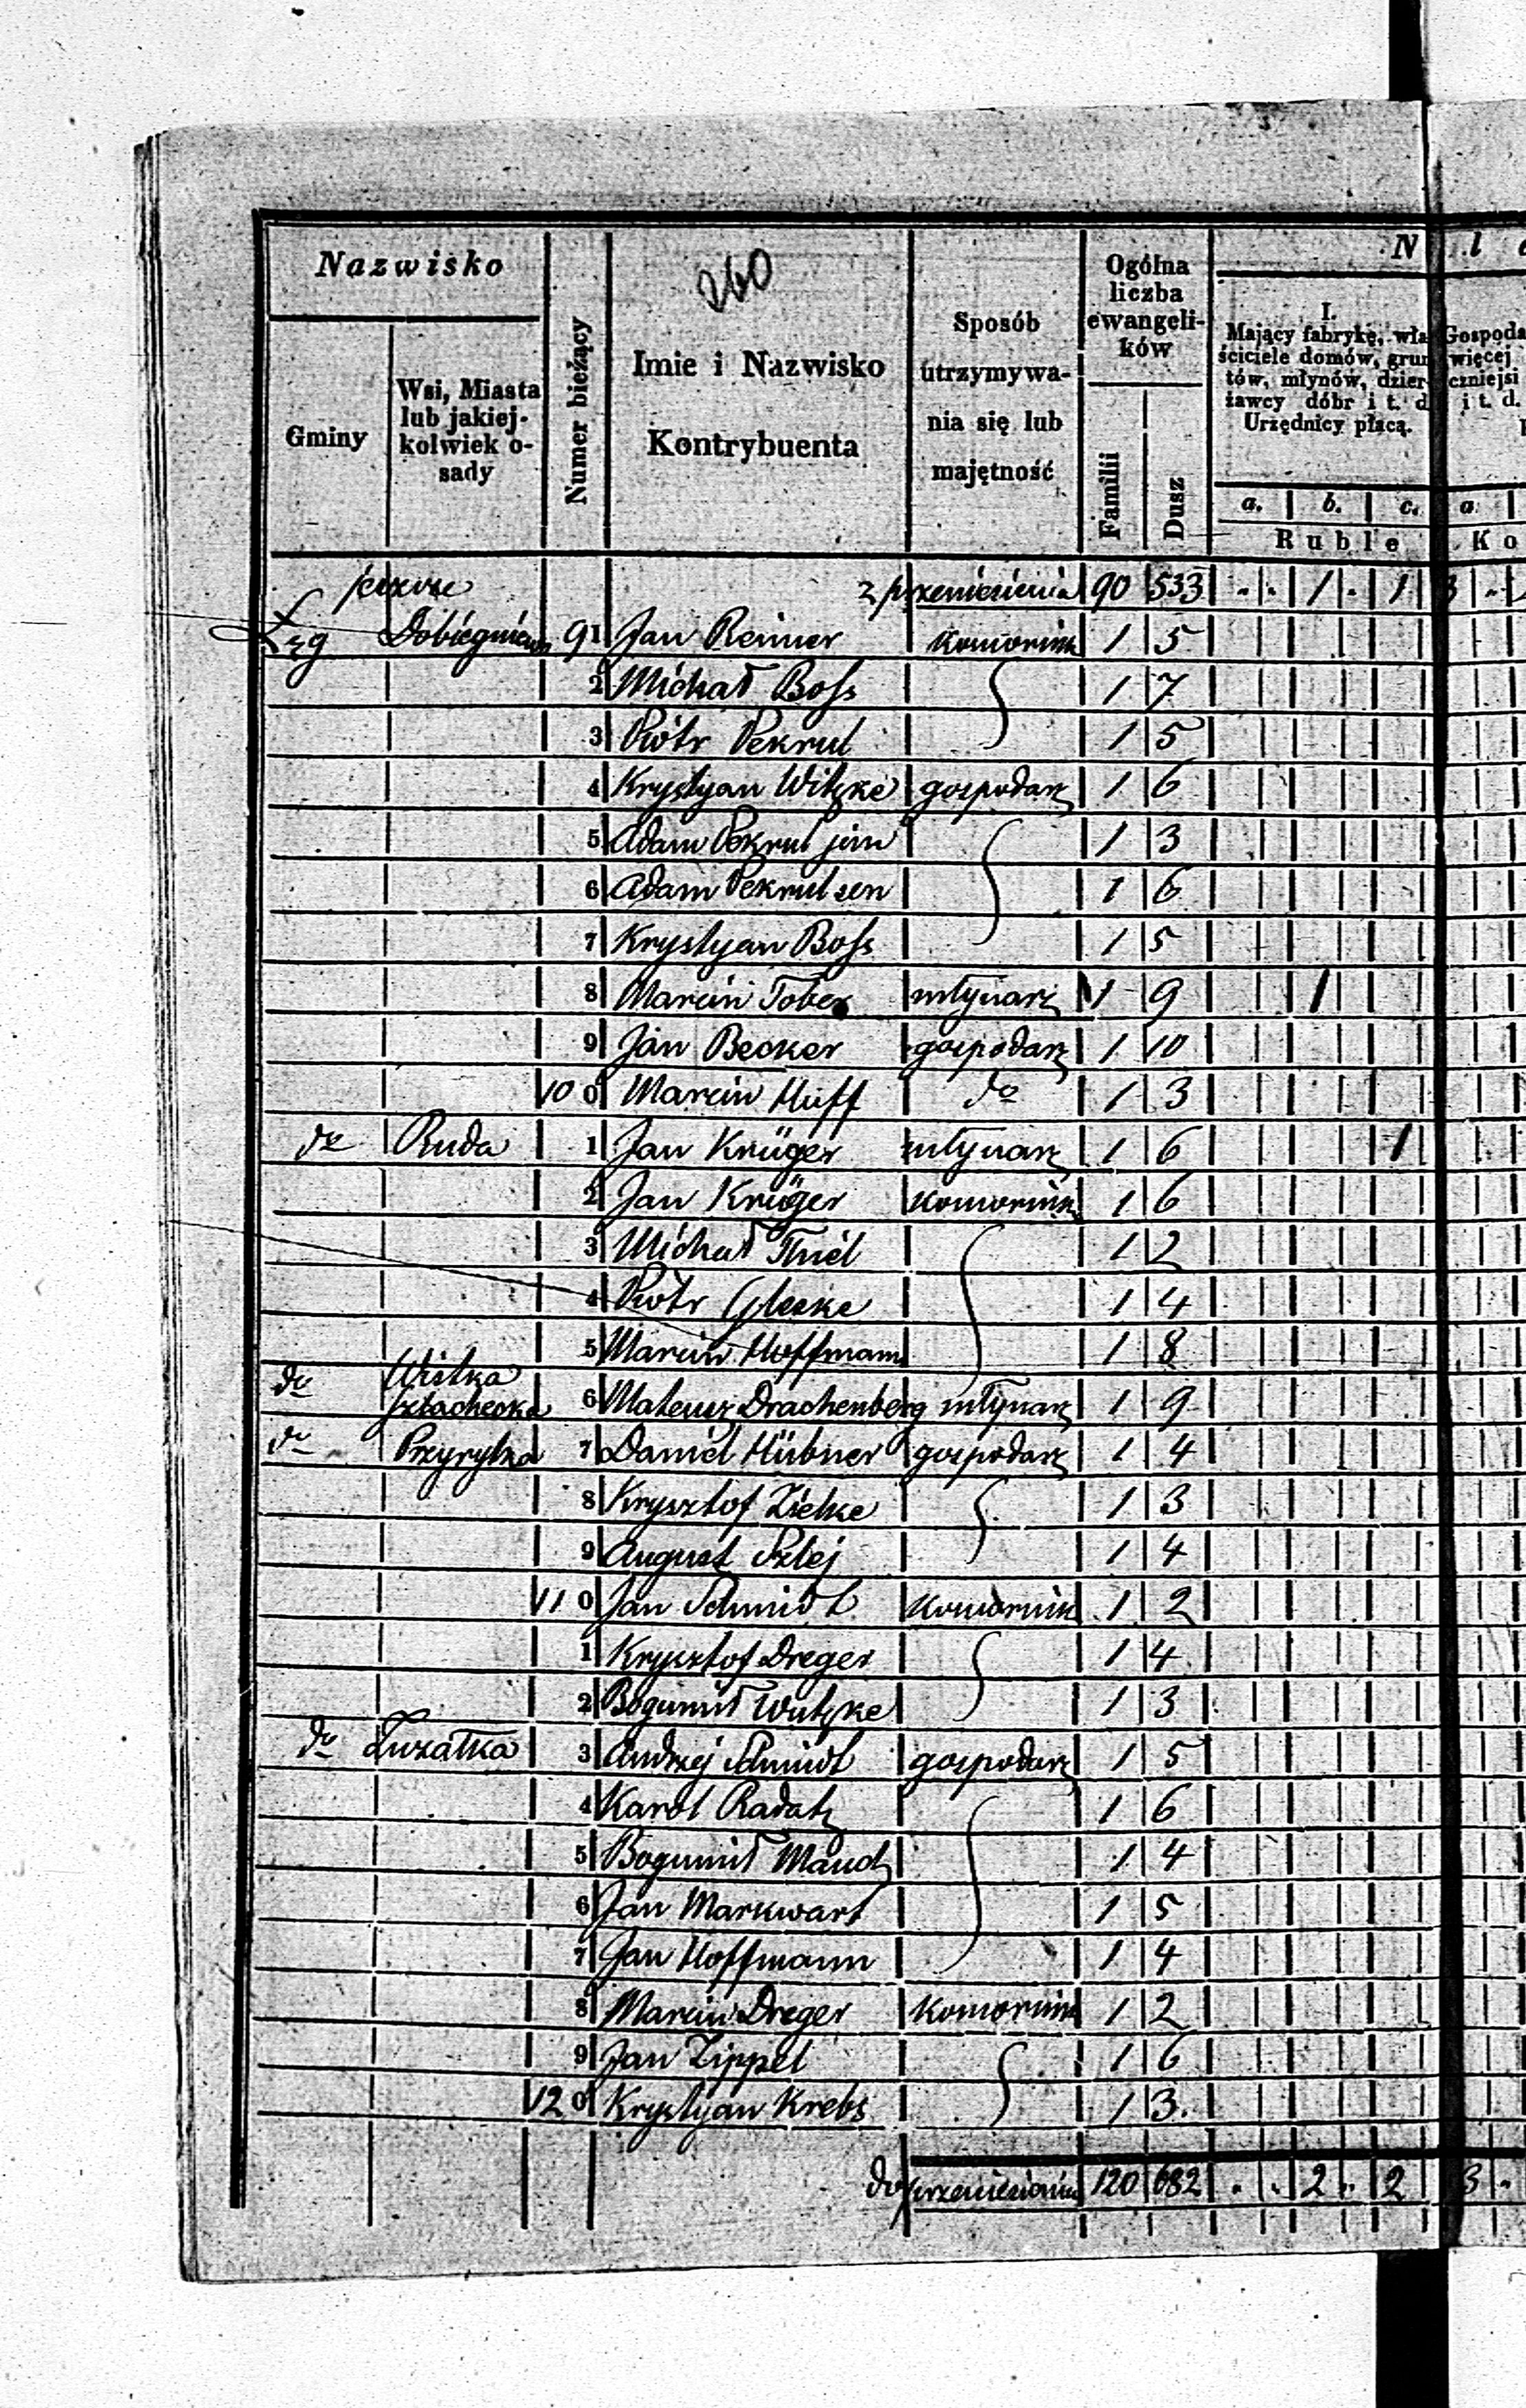 260
Nazwisko
Gminy
Wsi, Miasta
lub jakiej-
kolwiek o-
sady
Numer bieżący
Imie i Nazwisko
Kontrybuenta
Sposób
utrzymywa-
nia się lub
majętność
Ogólna
liczba
ewangeli-
ków
Familii
Dusz
N l
I.
Mający fabrykę, wła
ściciele domów, grun
tów, młynów, dzier-
żawcy dóbr i t. d
Urzędnicy płacą.
Gospoda
więcej
czniejsi
i t. d.
a. b. c. a
Ruble Ko
z przeniesienia 90 533 . . 1 . 1 3 .
Łęg Dobiegniewo 91 Jan Reimer komornik 1 5
2 Michał Boss 1 7
3 Piotr Pekrul 1 5
4 Krystyan Witzke gospodarz 1 6
5 Adam Pekrul jun 1 3
6 Adam Pekrul sen 1 6
7 Krystyan Boss 1 5
8 Marcin Tober młynarz 1 9 1
9 Jan Becker gospodarz 1 10
100 Marcin Huff do 1 3
do Ruda 1 Jan Krüger młynarz 1 6 1
2 Jan Krüger komornik 1 6
3 Michał Thiel 1 2
4 Piotr Gleske 1 4
5 Marcin Hoffmann 1 8
do Wistka
szlachecka 6 Mateusz Drachenberg młynarz 1 9
do Przyrytka 7 Daniel Hübner gospodarz 1 4
8 Krysztof Zielke 1 3
9 August Szlej 1 4
110 Jan Schmidt komornik 1 2
1 Krysztof Dreger 1 4
2 Bogumił Wutzke 1 3
do Zuzałka 3 Andrzej Schmidt gospodarz 1 5
4 Karol Radatz 1 6
5 Bogumił Maudz 1 4
6 Jan Markwart 1 5
7 Jan Hoffmann 1 4
8 Marcin Dreger komornik 1 2
9 Jan Zippel 1 6
120 Krystyan Krebs 1 3.
do przeniesienia 120 682 . . 2 . 2 3 .